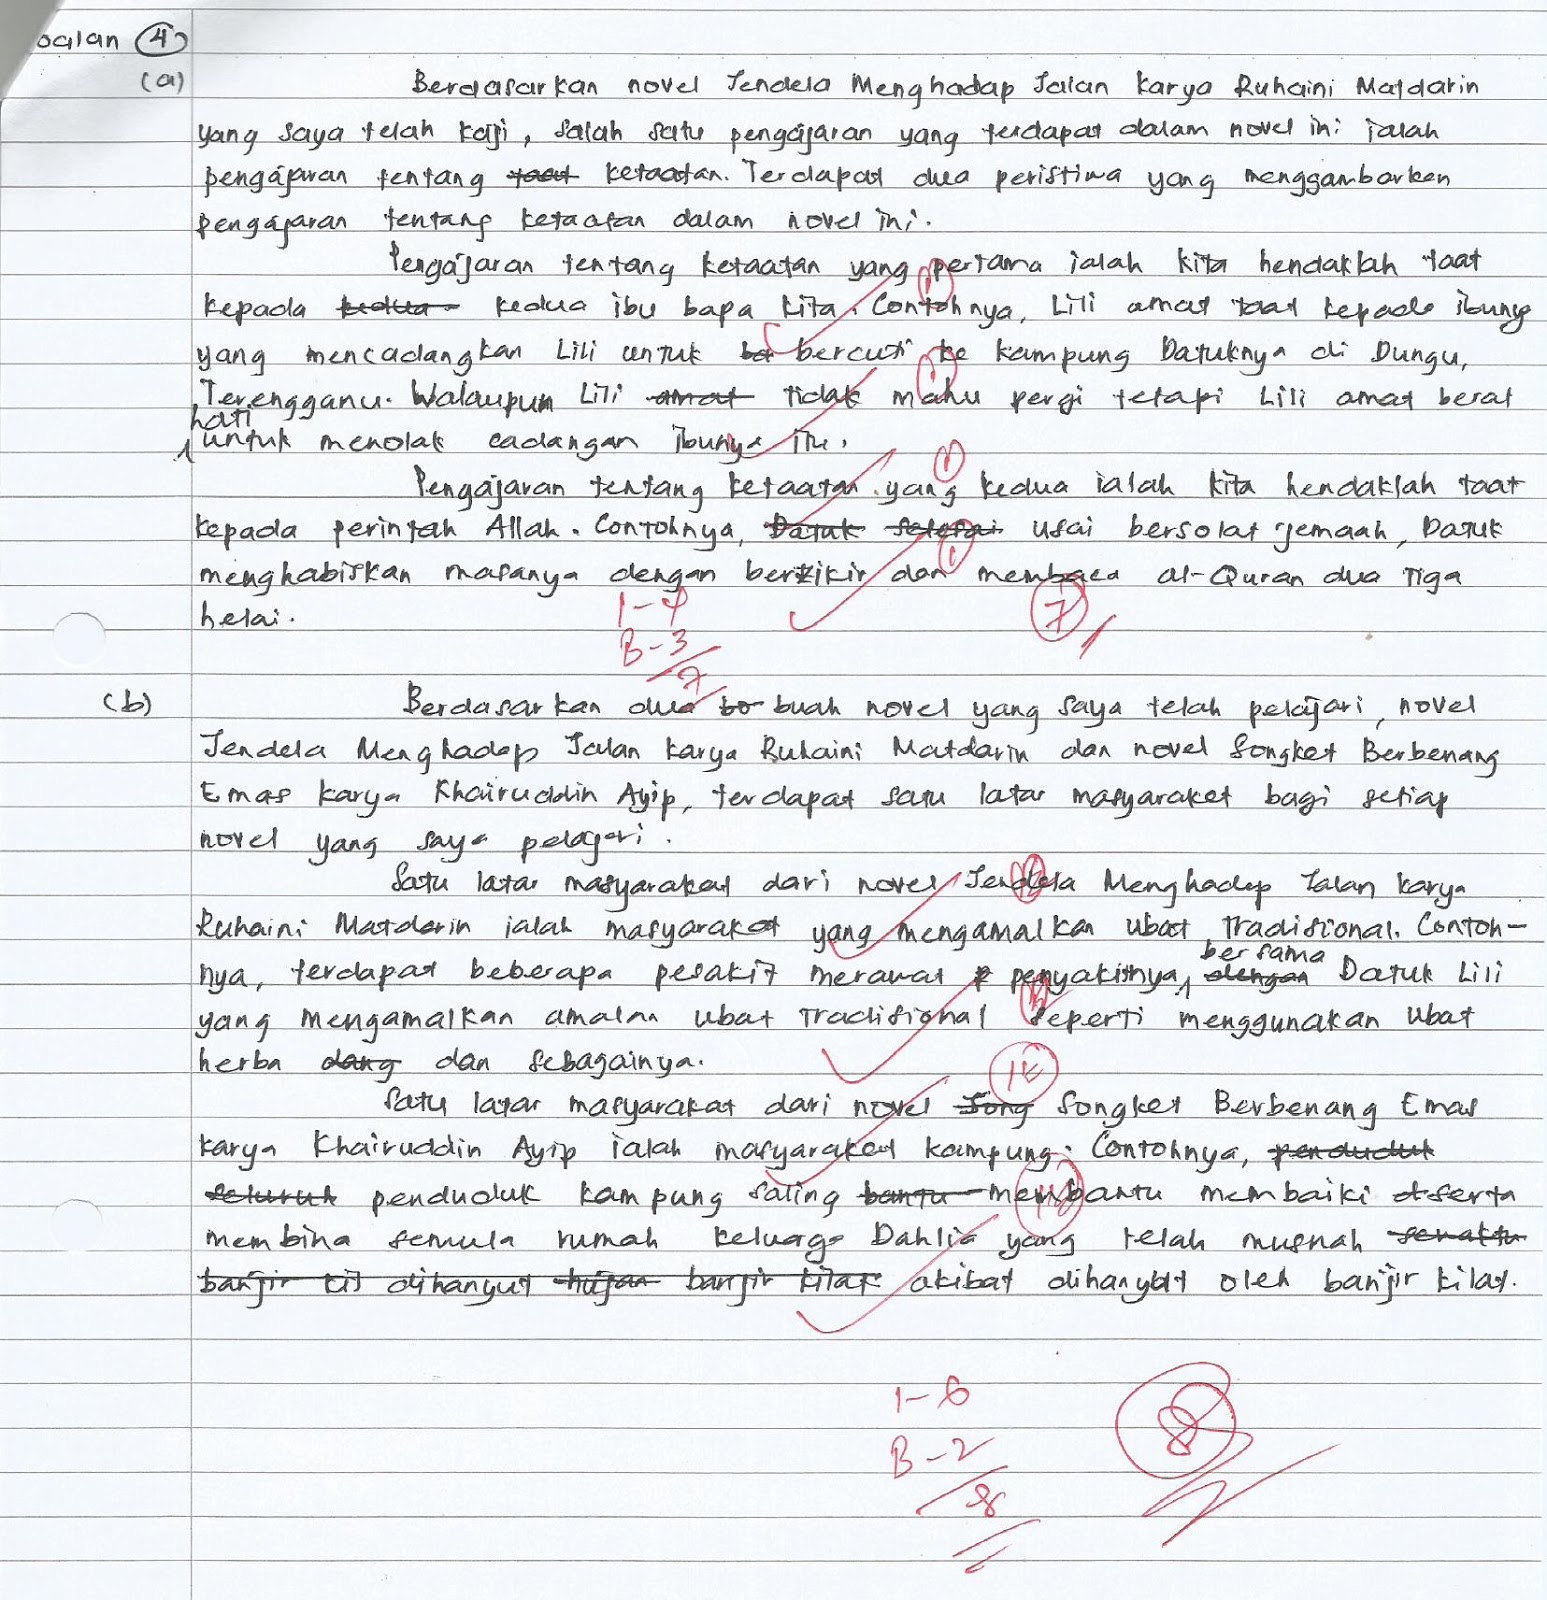 oalan 4
(a) Berdasarkan novel Jendela Menghadap Jalan karya Ruhaini Matdarin
yang saya telah kaji, salah satu pengajaran yang terdapat dalam novel ini ialah
pengajaran tentang taat ketaatan. Terdapat dua peristiwa yang menggambarkan
pengajaran tentang ketaatan dalam novel ini.
Pengajaran tentang ketaatan yang pertama ialah kita hendaklah taat
kepada kedua kedua ibu bapa kita. Contohnya, Lili amat taat kepada ibunya
yang mencadangkan Lili untuk bercuti ke kampung Datuknya di Dungu,
Terengganu. Walaupun Lili amat tidak mahu pergi tetapi Lili amat berat
hati
untuk menolak cadangan ibunya itu.
Pengajaran tentang ketaatan yang kedua ialah kita hendaklah taat
kepada perintah Allah. Contohnya, Datuk selesai usai bersolat jemaah, Datuk
menghabiskan masanya dengan berzikir dan membaca al-Quran dua tiga
helai.
1-4
B-3
7
7
(b) Berdasarkan dua bo buah novel yang saya telah pelajari, novel
Jendela Menghadap Jalan karya Ruhaini Matdarin dan novel Songket Berbenang
Emas karya Khairuddin Ayip, terdapat satu latar masyarakat bagi setiap
novel yang saya pelajari.
Satu latar masyarakat dari novel Jendela Menghadap Jalan karya
Ruhaini Matdarin ialah masyarakat yang mengamalkan ubat tradisional. Contoh-
bersama
nya, terdapat beberapa pesakit merawat p penyakitnya dengan Datuk Lili
yang mengamalkan amalan ubat tradisional seperti menggunakan ubat
herba dang dan sebagainya.
Satu latar masyarakat dari novel Song Songket Berbenang Emas
karya Khairuddin Ayip ialah masyarakat kampung. Contohnya, penduduk
seluruh penduduk kampung saling bantu membantu membaiki serta
membina semula rumah keluarga Dahlia yang telah musnah sewaktu
banjir kil dihanyut hujan banjir kilat akibat dihanyut oleh banjir kilat.
1-6
B-2
8
8